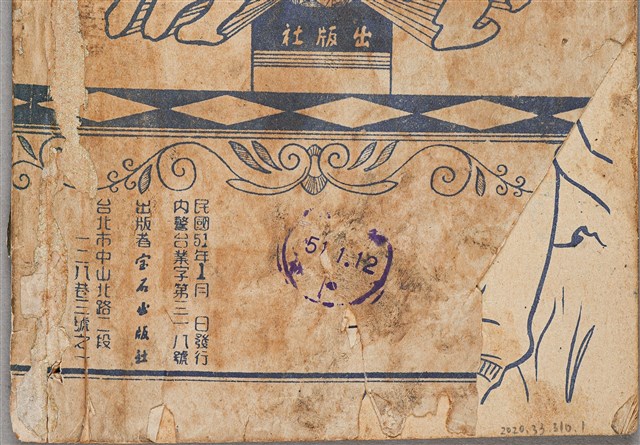 出版社
民國51年1月 日發行
內警台業字第三一八號
出版者宝石出版社
台北市中山北路二段
一二八巷三號之一
51.1.12
2020.33.310.1